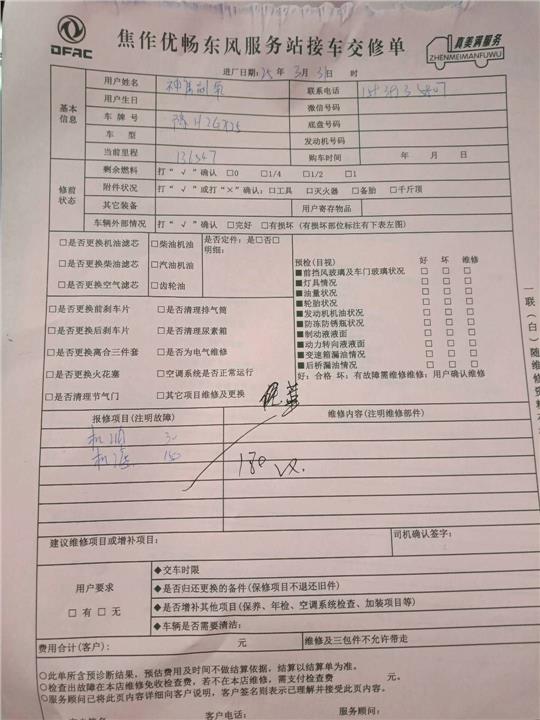 DFAC
焦作优畅东风服务站接车交修单
真美满服务
ZHENMEIMANFUWU
进厂日期：25 年 3 月 31 日 时
基本信息
用户姓名
联系电话
用户生日 微信号码
车牌号 豫H2G 底盘号码
车型 发动机号码
当前里程 购车时间 年 月 日
修前状态
剩余燃料 打“√”确认 □0 □1/4 □1/2 □1
附件状况 打“√”或打“×”确认：□工具 □灭火器 □备胎 □千斤顶
其它装备 用户寄存物品
车辆外部情况 打“√”确认 □完好 □有损坏（有损坏部位标注有下表左图）
□是否更换机油滤芯 □柴油机油 是否定件：是□否□
明细：
□是否更换柴油滤芯 □汽油机油
□是否更换空气滤芯 □齿轮油
□是否更换前刹车片 □是否清理排气筒
□是否更换后刹车片 □是否清理尿素箱
□是否更换离合三件套 □是否为电气维修
□是否更换火花塞 □空调系统是否正常运行
□是否清理节气门 □其它项目维修及更换
预检(目视) 好 坏 维修
■前挡风玻璃及车门玻璃状况 □ □ □
■灯具情况 □ □ □
■油量状况 □ □ □
■轮胎状况 □ □ □
■发动机机油状况 □ □ □
■防冻防锈瓶状况 □ □ □
■制动液液面 □ □ □
■动力转向液液面 □ □ □
■变速箱漏油情况 □ □ □
■后桥漏油情况 □ □ □
好：合格 坏：有故障需维修维修：用户确认维修
报修项目(注明故障) 维修内容(注明维修部件)
机油
机滤 150
180
建议维修项目或增补项目： 司机确认签字：
用户要求
□ 有 □ 无
◆交车时限
◆是否归还更换的备件(保修项目不退还旧件)
◆是否增补其他项目(保养、年检、空调系统检查、加装项目等)
◆车辆是否需要清洁：
费用合计(客户)： 元 维修及三包件不允许带走
○此单所含预诊断结果，预估费用及时间不做结算依据，结算以结算单为准。
○检查出故障在本店维修免收检查费，若不在本店维修，需支付检查费 元。
○服务顾问已将此页内容详细向客户说明，客户签名则表示已理解并接受此页内容。
客户电话： 服务顾问：
一联（白）随维修资料